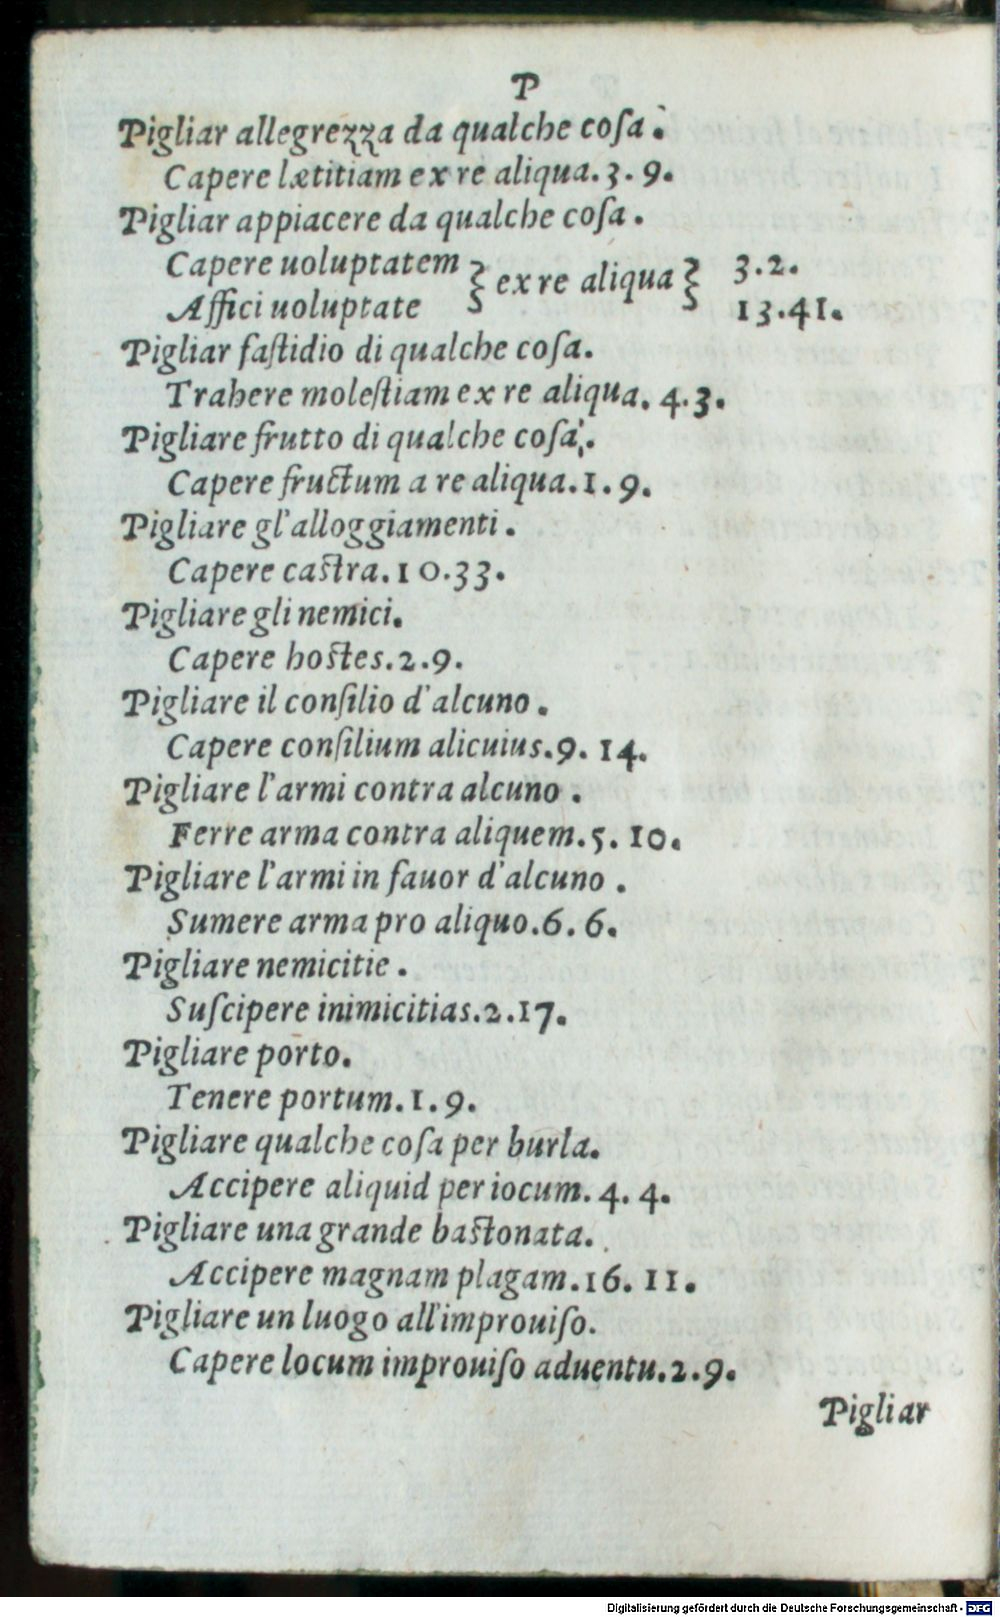 P
Pigliar allegrezza da qualche coſa.
Capere lætitiam ex re aliqua.3.9.
Pigliar appiacere da qualche coſa.
Capere uoluptatem } ex re aliqua } 3.2.
Affici uoluptate 13.41.
Pigliar faſtidio di qualche coſa.
Trahere moleſtiam ex re aliqua. 4.3.
Pigliare frutto di qualche coſa.
Capere fructum a re aliqua.1.9.
Pigliare gl'alloggiamenti.
Capere caſtra.10.33.
Pigliare gli nemici.
Capere hoſtes.2.9.
Pigliare il conſilio d'alcuno.
Capere conſilium alicuius.9.14.
Pigliare l'armi contra alcuno.
Ferre arma contra aliquem.5.10.
Pigliare l'armi in fauor d'alcuno.
Sumere arma pro aliquo.6.6.
Pigliare nemicitie.
Suſcipere inimicitias.2.17.
Pigliare porto.
Tenere portum.1.9.
Pigliare qualche coſa per burla.
Accipere aliquid per iocum.4.4.
Pigliare una grande baſtonata.
Accipere magnam plagam.16.11.
Pigliare un luogo all'improuiſo.
Capere locum improuiſo aduentu.2.9.
Pigliar
Digitalisierung gefördert durch die Deutsche Forschungsgemeinschaft - DFG